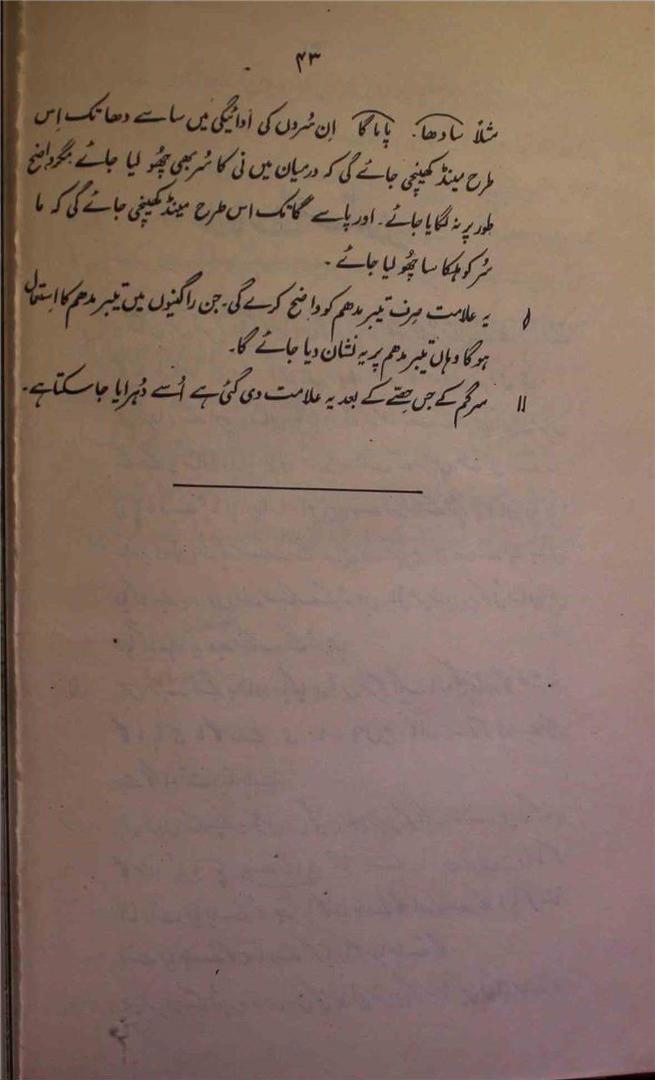 ۴۳
مثلاً سادھا۔ پاماگا اِن سُروں کی ادائیگی میں سا سے دھا تک اِس
طرح مینڈ کھینچی جائے گی کہ درمیان میں نی کا سُر بھی چُھو لیا جائے مگر واضح
طور پر نہ لگایا جائے۔ اور پا سے گا تک اس طرح مینڈ کھینچی جائے گی کہ ما
سُر کو ہلکا سا چُھو لیا جائے ۔
یہ علامت صِرف تیبر مدھم کو واضح کرے گی۔ جن راگنیوں میں تیبر مدھم کا اِستعمال
ہوگا وہاں تیبر مدھم پر یہ نشان دیا جائے گا۔
॥ سرگم کے جس حِصّے کے بعد یہ علامت دی گئی ہے اُسے دُہرایا جاسکتا ہے۔